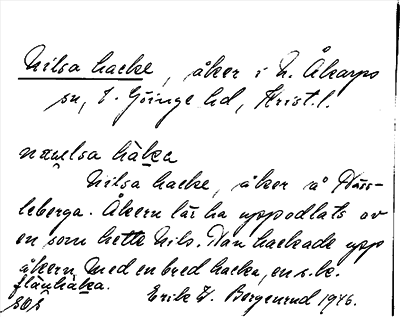 Nilsa hacke, åker i N. Åkarps
sn, V. Göinge hd, Krist. l.
næu̯lsa häka
Nilsa hacke, åker å Häss-
leberga. Åkern lär ha uppodlats av
en som hette Nils. Han hackade upp
åkern med en bred hacka, en s.k.
flåuhäka.
Erik W. Bergenrud 1946.